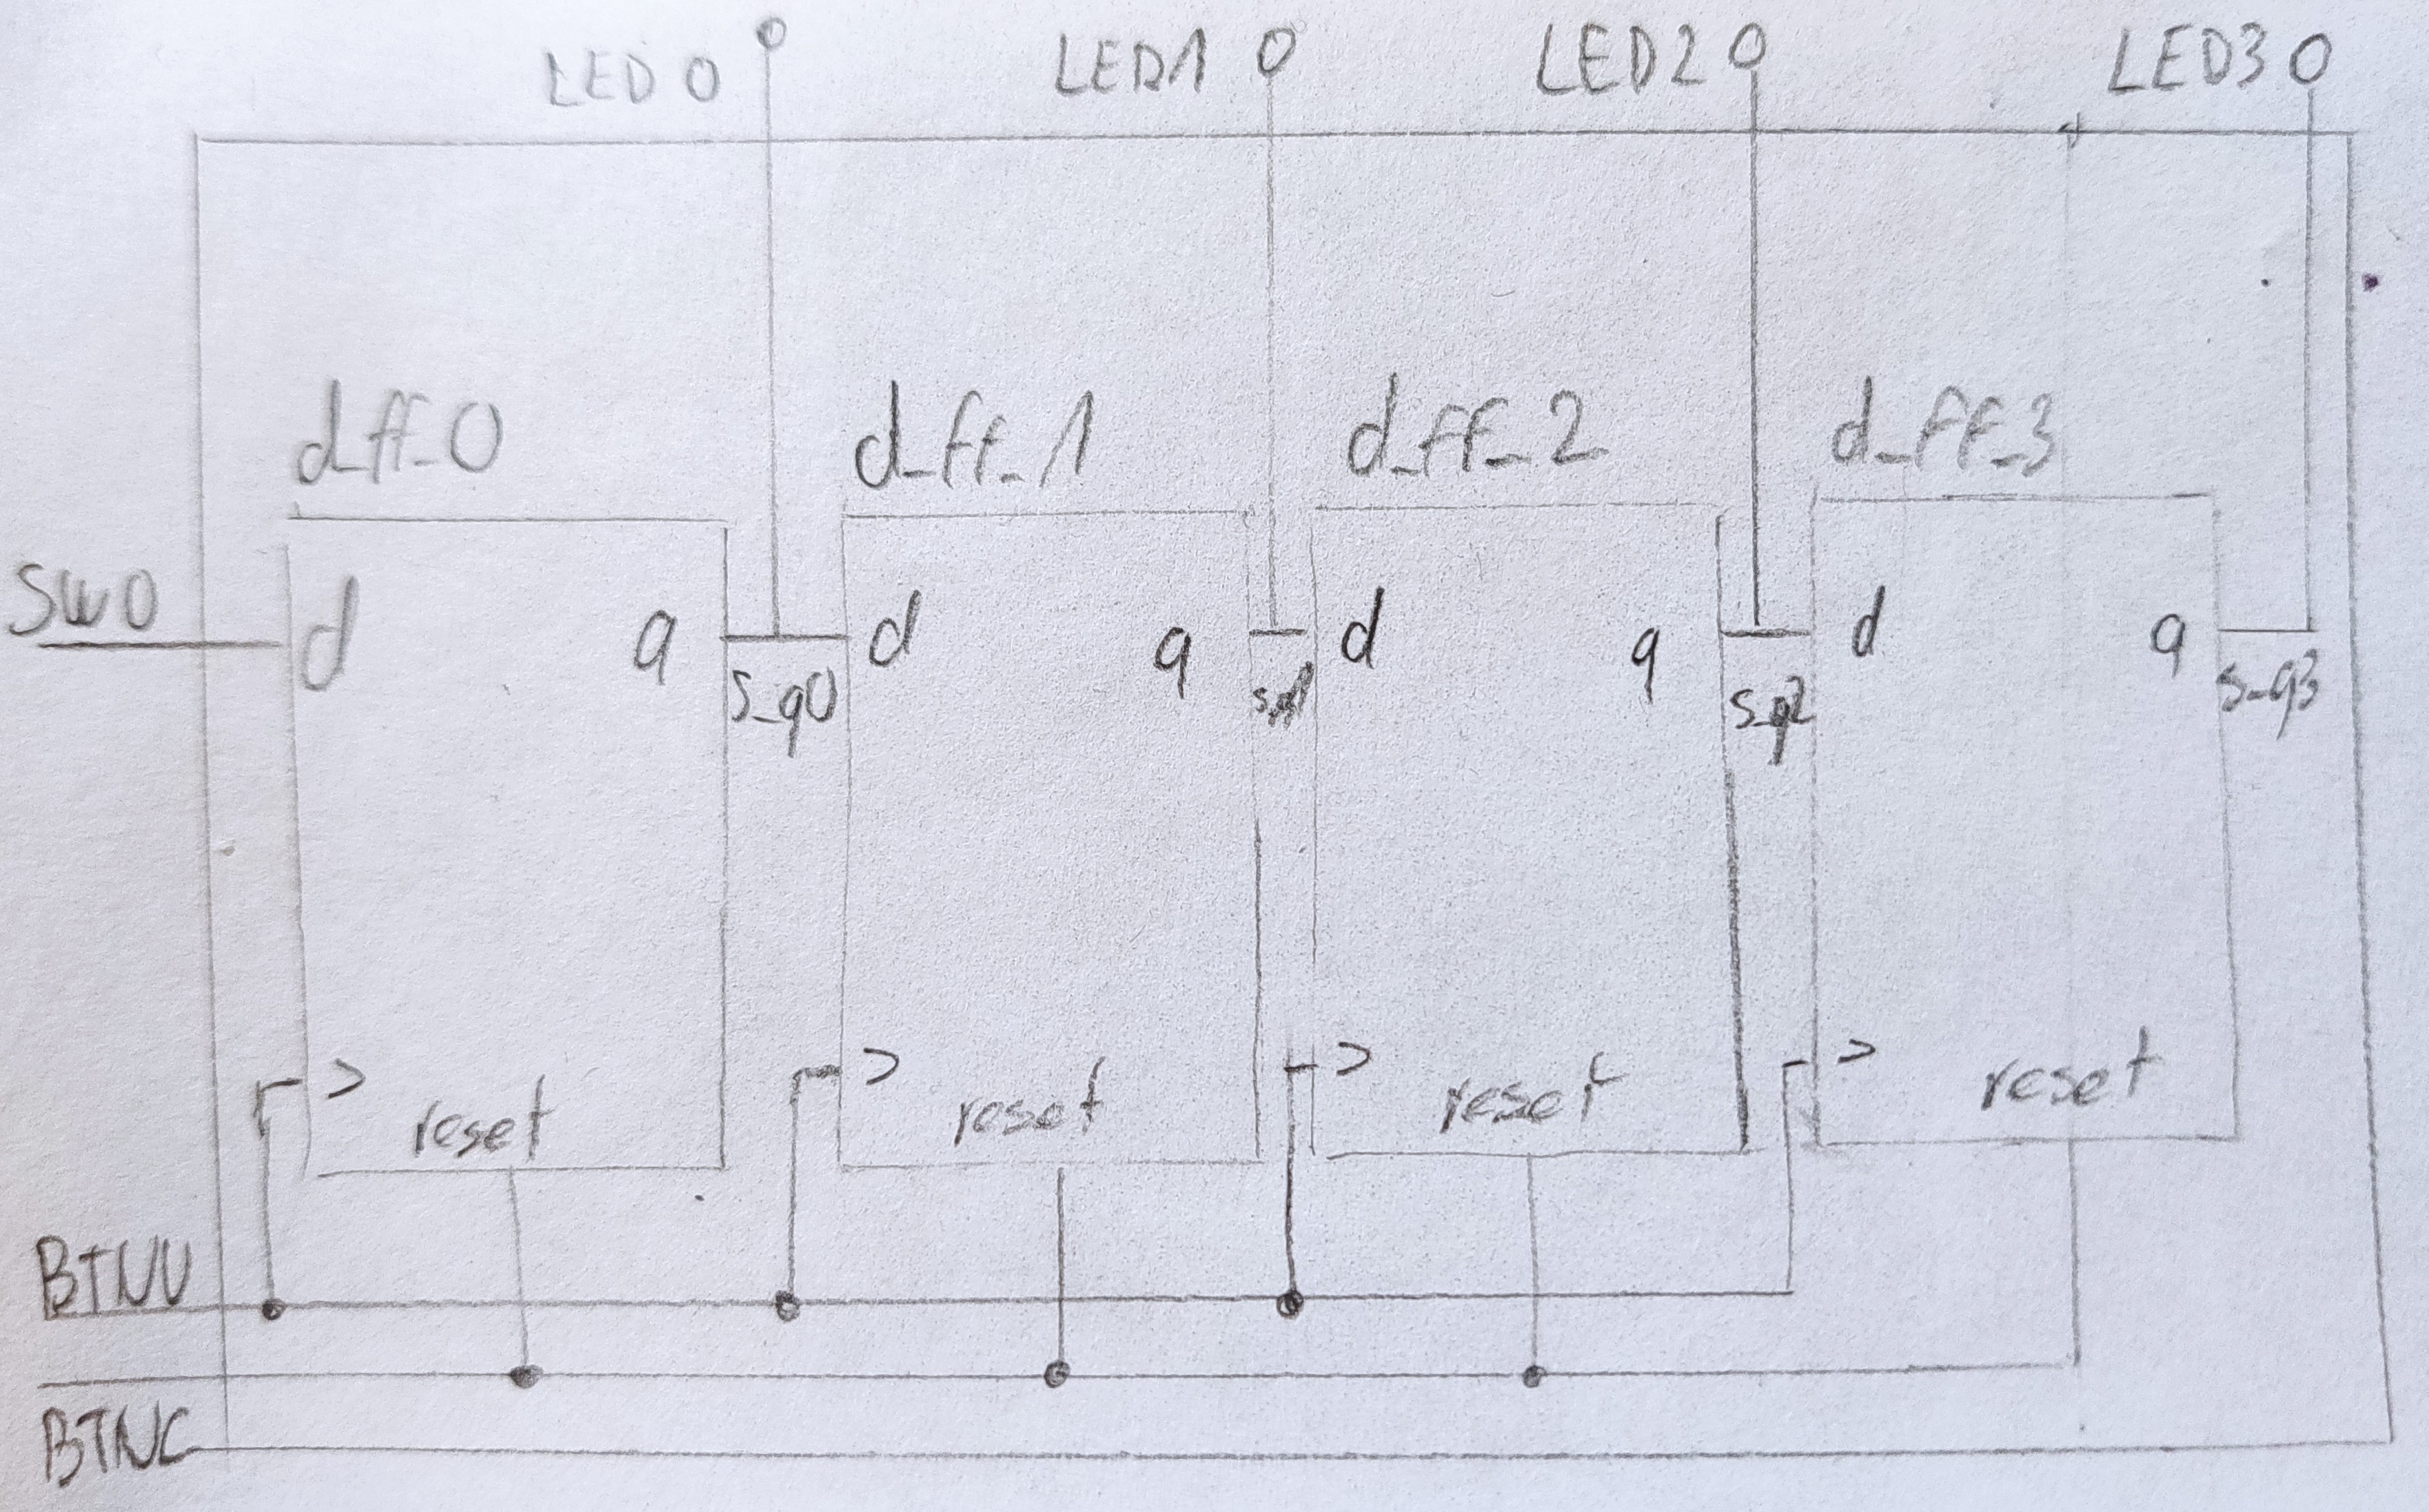 LED 0
LED1
LED2
LED3
d_ff_0
d_ff_1
d_ff_2
d_ff_3
SW0
d
q
s_q0
d
q
d
q
s_q2
d
q
s_q3
reset
reset
reset
reset
BTNU
BTNC